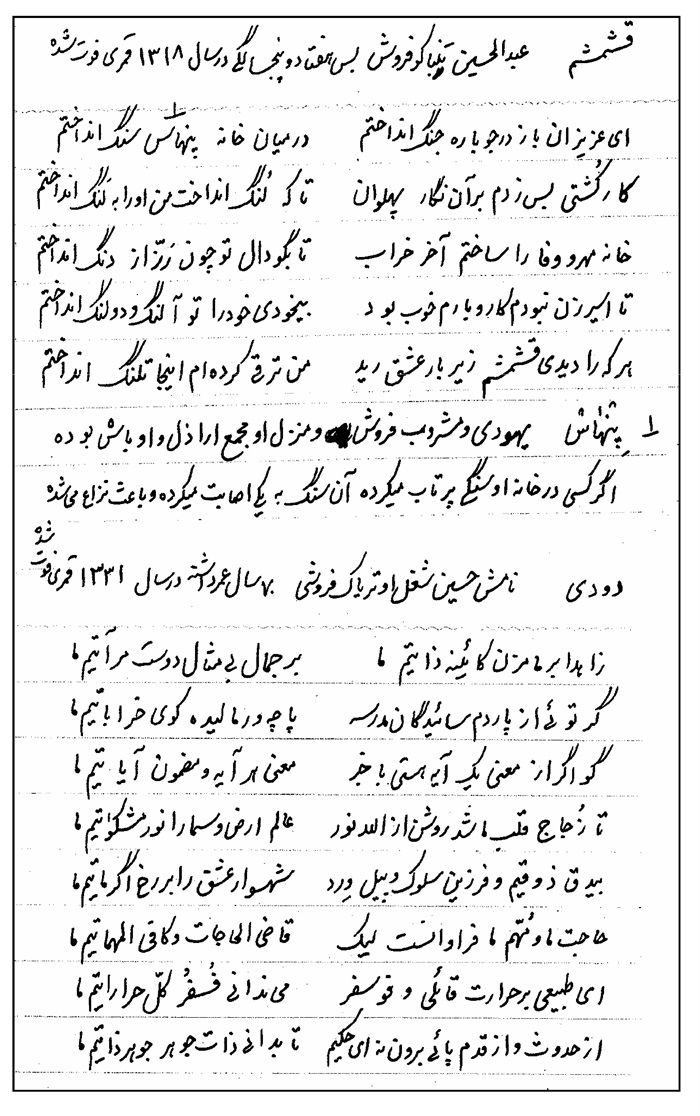 قشمشم عبدالحسین تنباکوفروش بسن هفتاد و پنجسالگی در سال ۱۳۱۸ قمری فوت شده
ای عزیزان باز در جوباره جنگ انداختم در میان خانه پنهاس ۱ سنگ انداختم
کار کُشتی بس زدم بر آن نگار پهلوان تا که لُنگ انداخت من او را به لَنگ انداختم
خانه مهر و وفا را ساختم آخر خراب تا بگودال تو چون رَزّاز دنگ انداختم
تا اسیر زن نبودم کار و بارم خوب بود بیخودی خود را تو آلنگ و دولنگ انداختم
هر که را دیدی قشمشم زیر بار عشق رید من ترقی کرده‌ام اینجا تلنگ انداختم
۱ پِنهاس یهودی و مشروب فروش و منزل او مجمع اراذل و اوباش بوده
اگر کسی در خانه او سنگی پرتاب میکرده آن سنگ به یکی اصابت میکرده و باعث نزاع می‌شده
دودی نامش حسین شغل او تریاک فروشی ۷۰ سال عمر داشته در سال ۱۳۳۱ قمری فوت شده
زاهدا بر ما مزن کائینه ذاتیم ما بر جمال بی مثال دوست مرآتیم ما
گر توئی از پاردم سائیدگان مدرسه پاچه ورمالیده کوی خراباتیم ما
گو اگر از معنی یک آیه هستی با خبر معنی هر آیه و مضمون آیاتیم ما
تا زُجاج قلب ما شد روشن از الله نور عالم ارض و سما را نور مشکوتیم ما
بیدق ذوقیم و فرزین سلوک و پیل وِرد شهسوار عشق را بر رخ اگر ماتیم ما
حاجت ما و مُهّم ما فراوانست لیک قاضی الحاجات و کافی المهماتیم ما
ای طبیعی بر حرارت قائلی و فوسفر می ندانی فُسفُر کلّ حراراتیم ما
از حدوث و از قدم پائی برون نه ای حکیم تا بدانی ذات جوهر جوهر ذاتیم ما